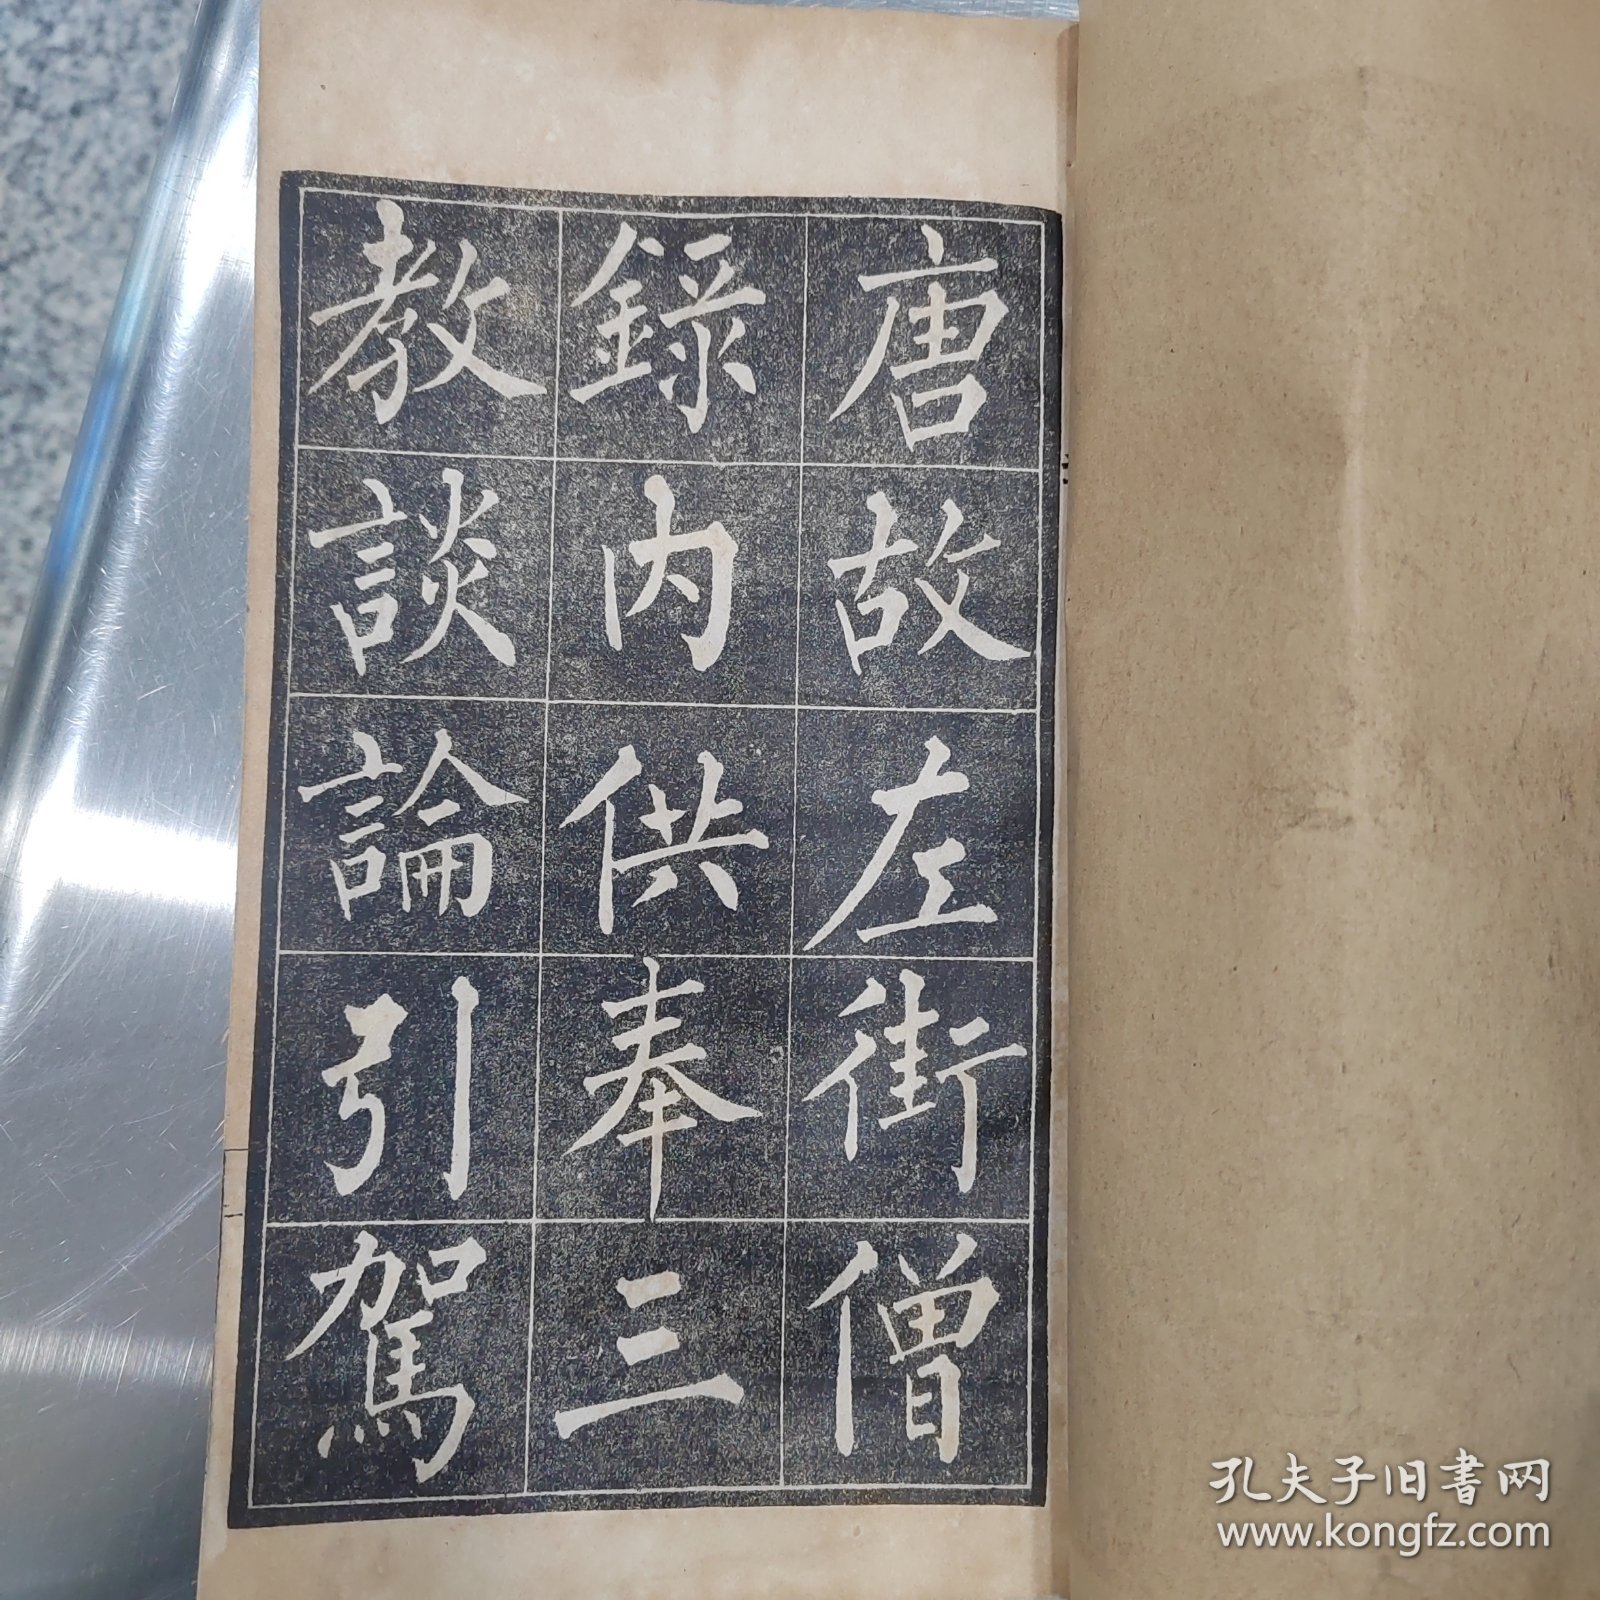 唐故左街僧
錄內供奉三
教談論引駕
孔夫子旧书网
www.kongfz.com